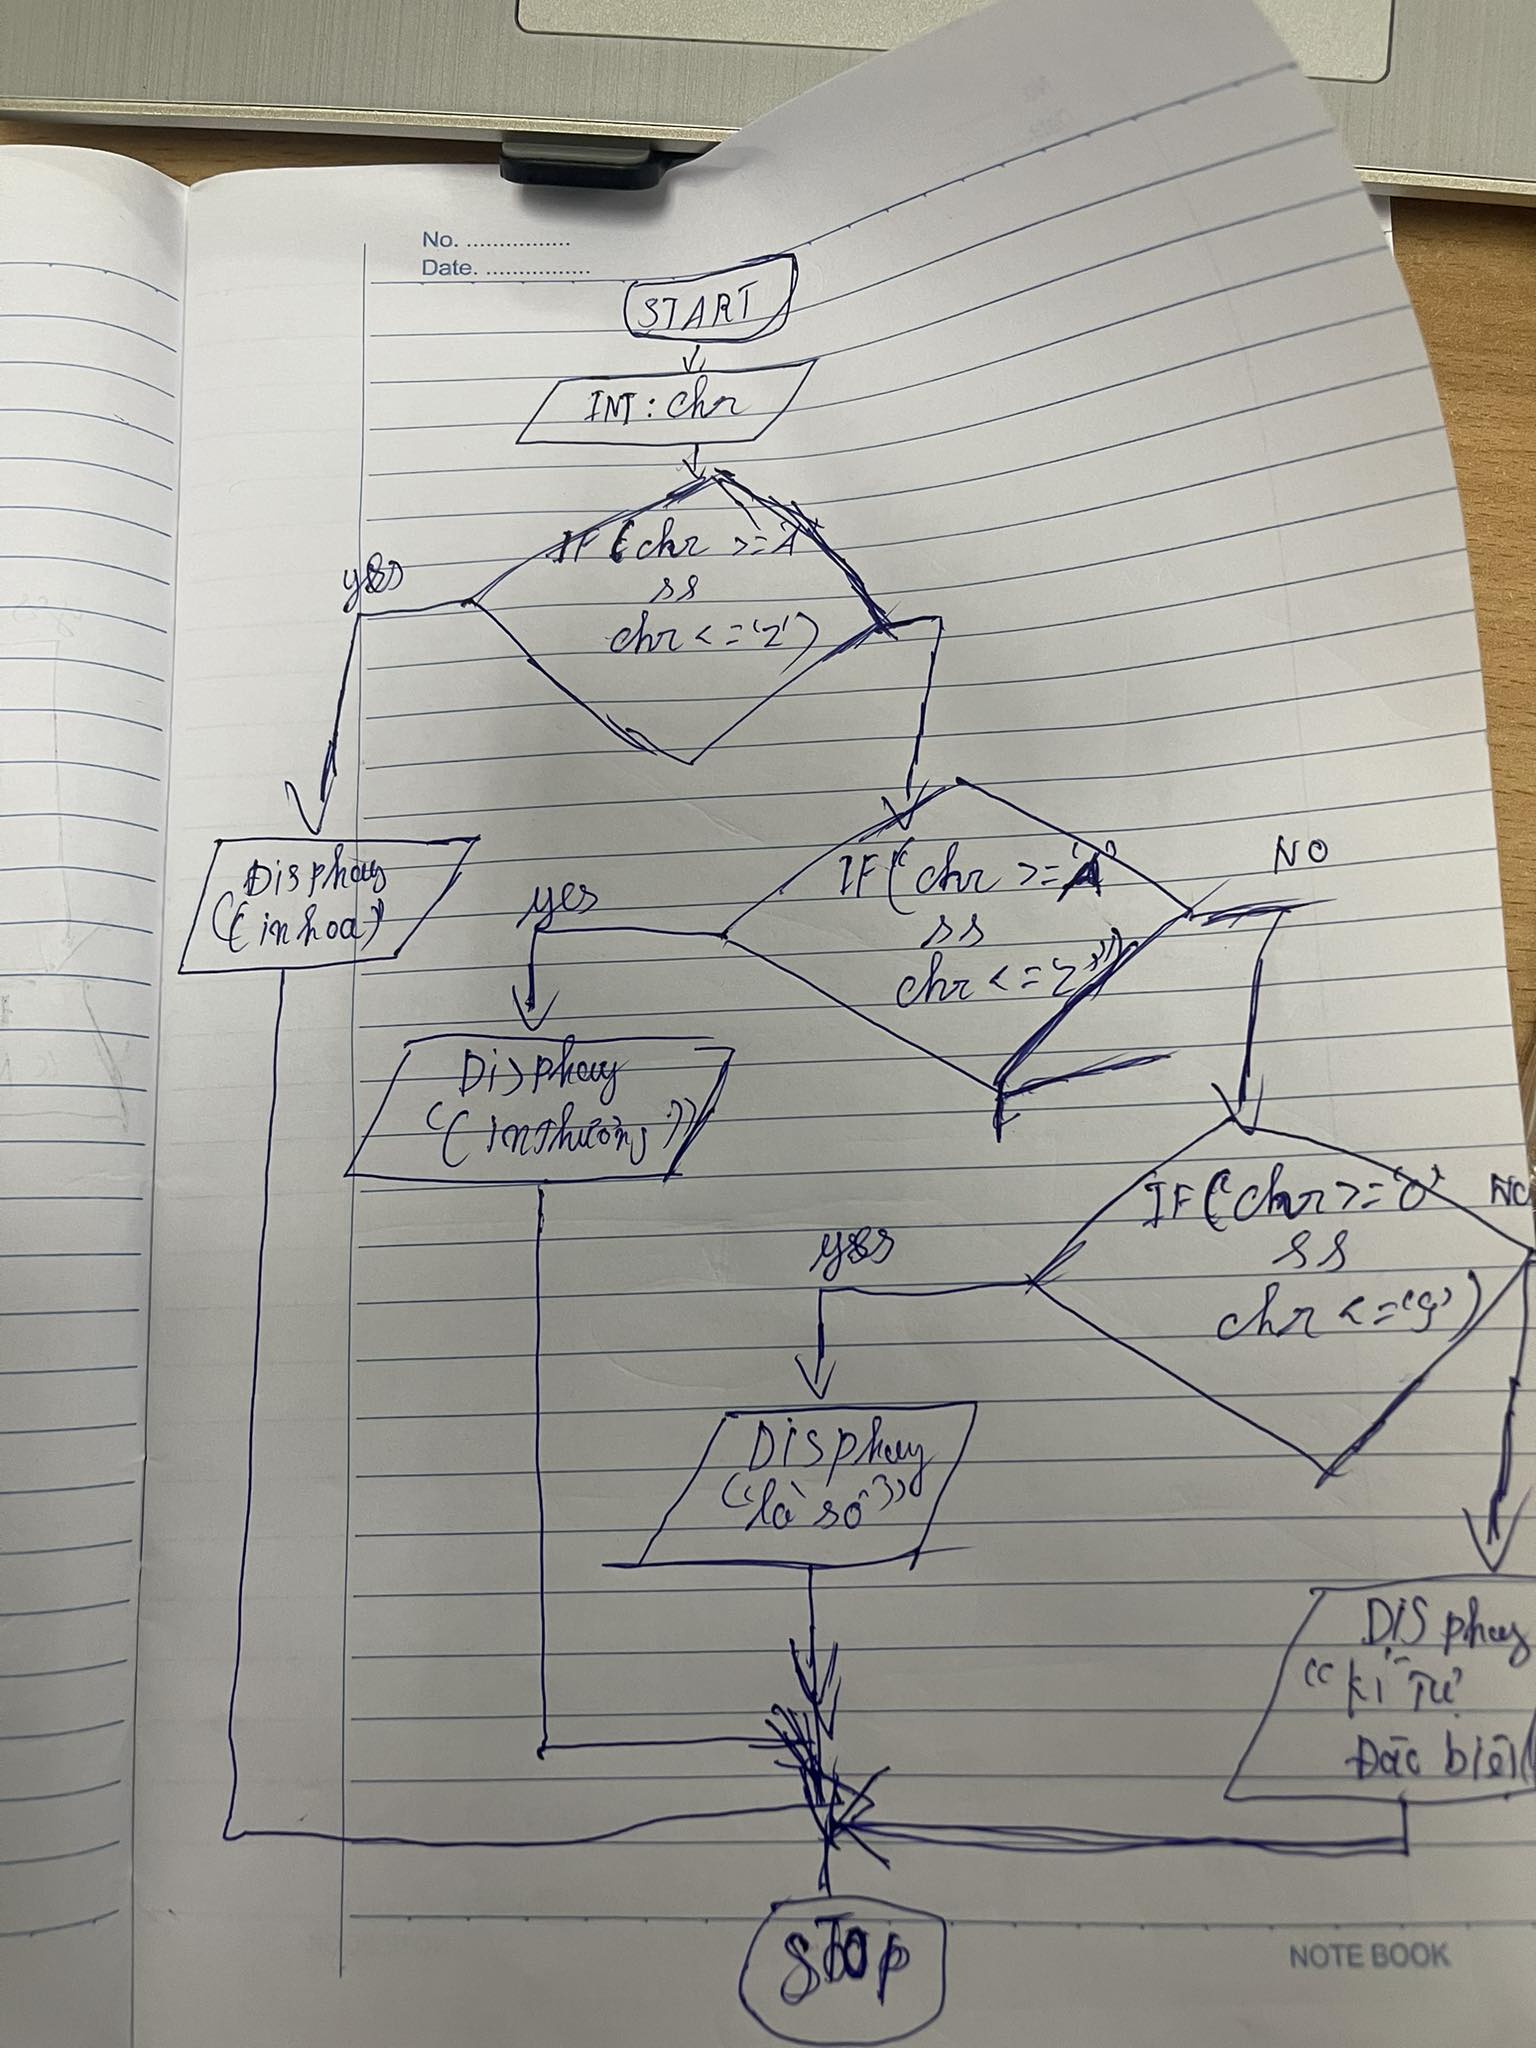 No. ................
Date. ................
START
INT : chr
IF (chr >= 'A'
&&
chr <= 'Z')
yes
Display
("in hoa")
IF (chr >= 'A'
&&
chr <= 'Z')
yes
NO
Display
("in thường")
IF (chr >= '0'
&&
chr <= '9')
yes
NO
Display
("là số")
Display
"kí tự
Đặc biệt
STOP
NOTE BOOK